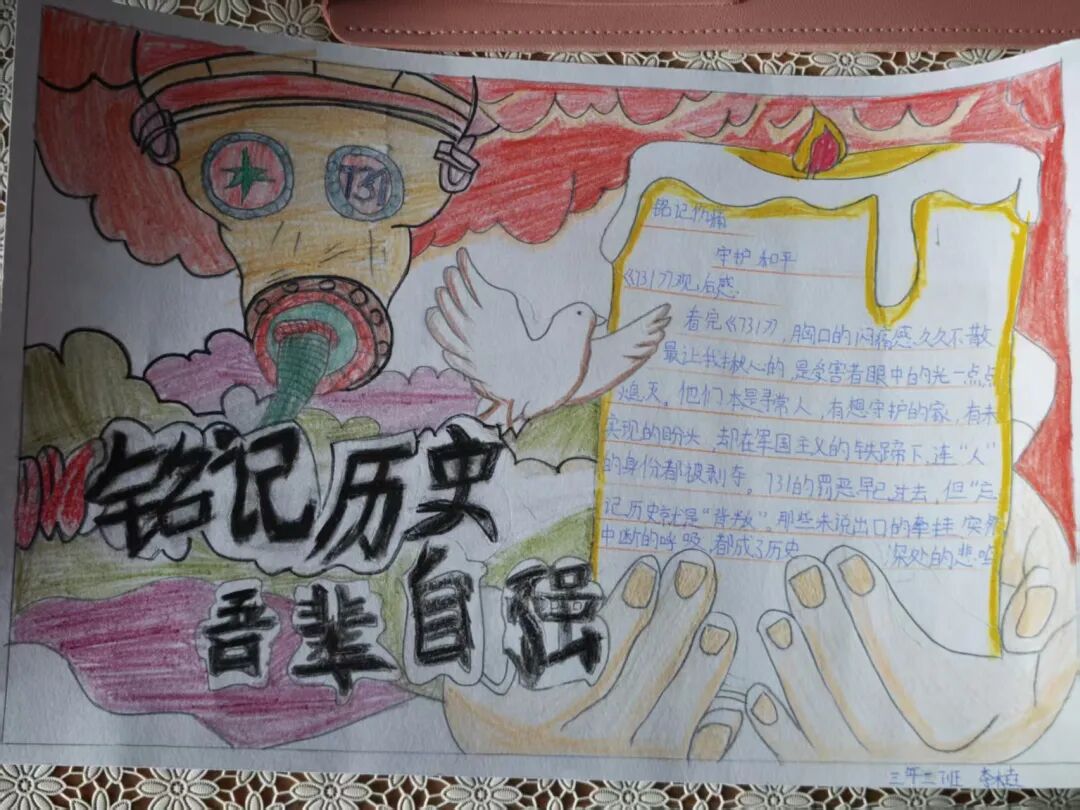 731
铭记历史
吾辈自强
铭记伤痛
守护和平
《731》观后感
看完《731》,胸口的闷痛感久久不散
最让我揪心的,是受害者眼中的光一点点
熄灭。他们本是寻常人,有想守护的家,有未
实现的盼头,却在军国主义的铁蹄下,连“人”
的身份都被剥夺。731的罪恶早已过去,但“忘
记历史就是“背叛”。那些未说出口的牵挂,突然
中断的呼吸,都成了历史深处的悲鸣
三年二班